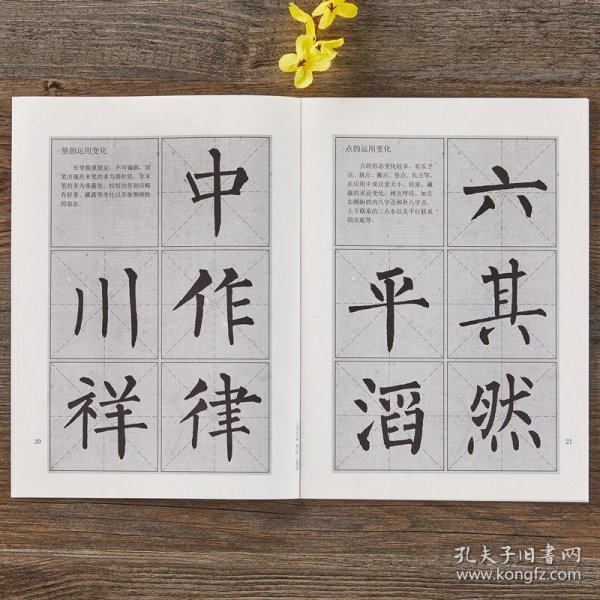 竖的运用变化
长竖稍重稳定,不可偏斜。竖
笔出现在末笔的多为悬针竖,非末
笔的多为垂露竖,较短的竖则应略
有轻重、藏露等变化以及敧侧顾盼
的姿态。
中
川
作
祥
律
20
点的运用变化
点的形态变化较多,有瓜子
点、挑点、撇点、竖点、长点等,
在应用中要注意大小、轻重、藏
露的灵活变化,相互呼应。如左
右顾盼的内八字点和外八字点,
上下联系的三点水以及平行联系
四点底等。
六
平
其
滔
然
21
孔夫子旧书网
www.kongfz.com